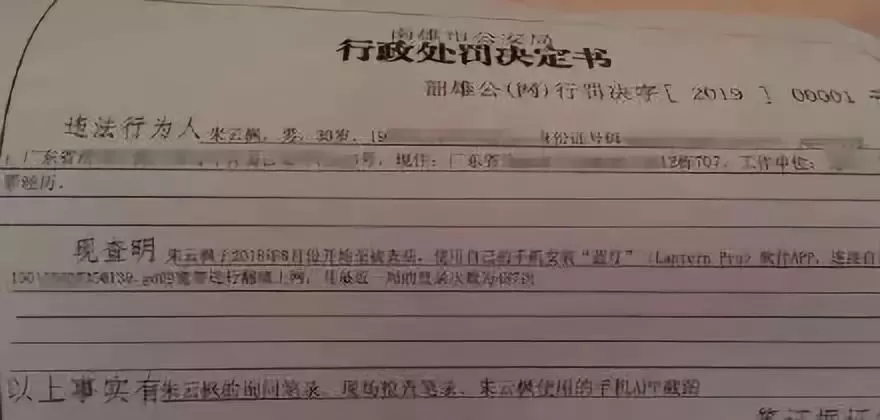 南雄市公安局
行政处罚决定书
韶雄公(网)行罚决字[ 2019 ] 00001
违法行为人 朱云枫, 男, 30岁, 19 身份证号码
广东省 号, 现住: 广东省 12栋707, 工作单位:
经历.
现查明 朱云枫于2018年8月份开始至被查获, 使用自己的手机安装“蓝灯” (Lantern Pro) 软件APP, 连接自
宽带进行翻墙上网, 且最近一周的登录次数为487次
以上事实有 朱云枫的询问笔录、现场检查笔录、朱云枫使用的手机APP截图
等证据证